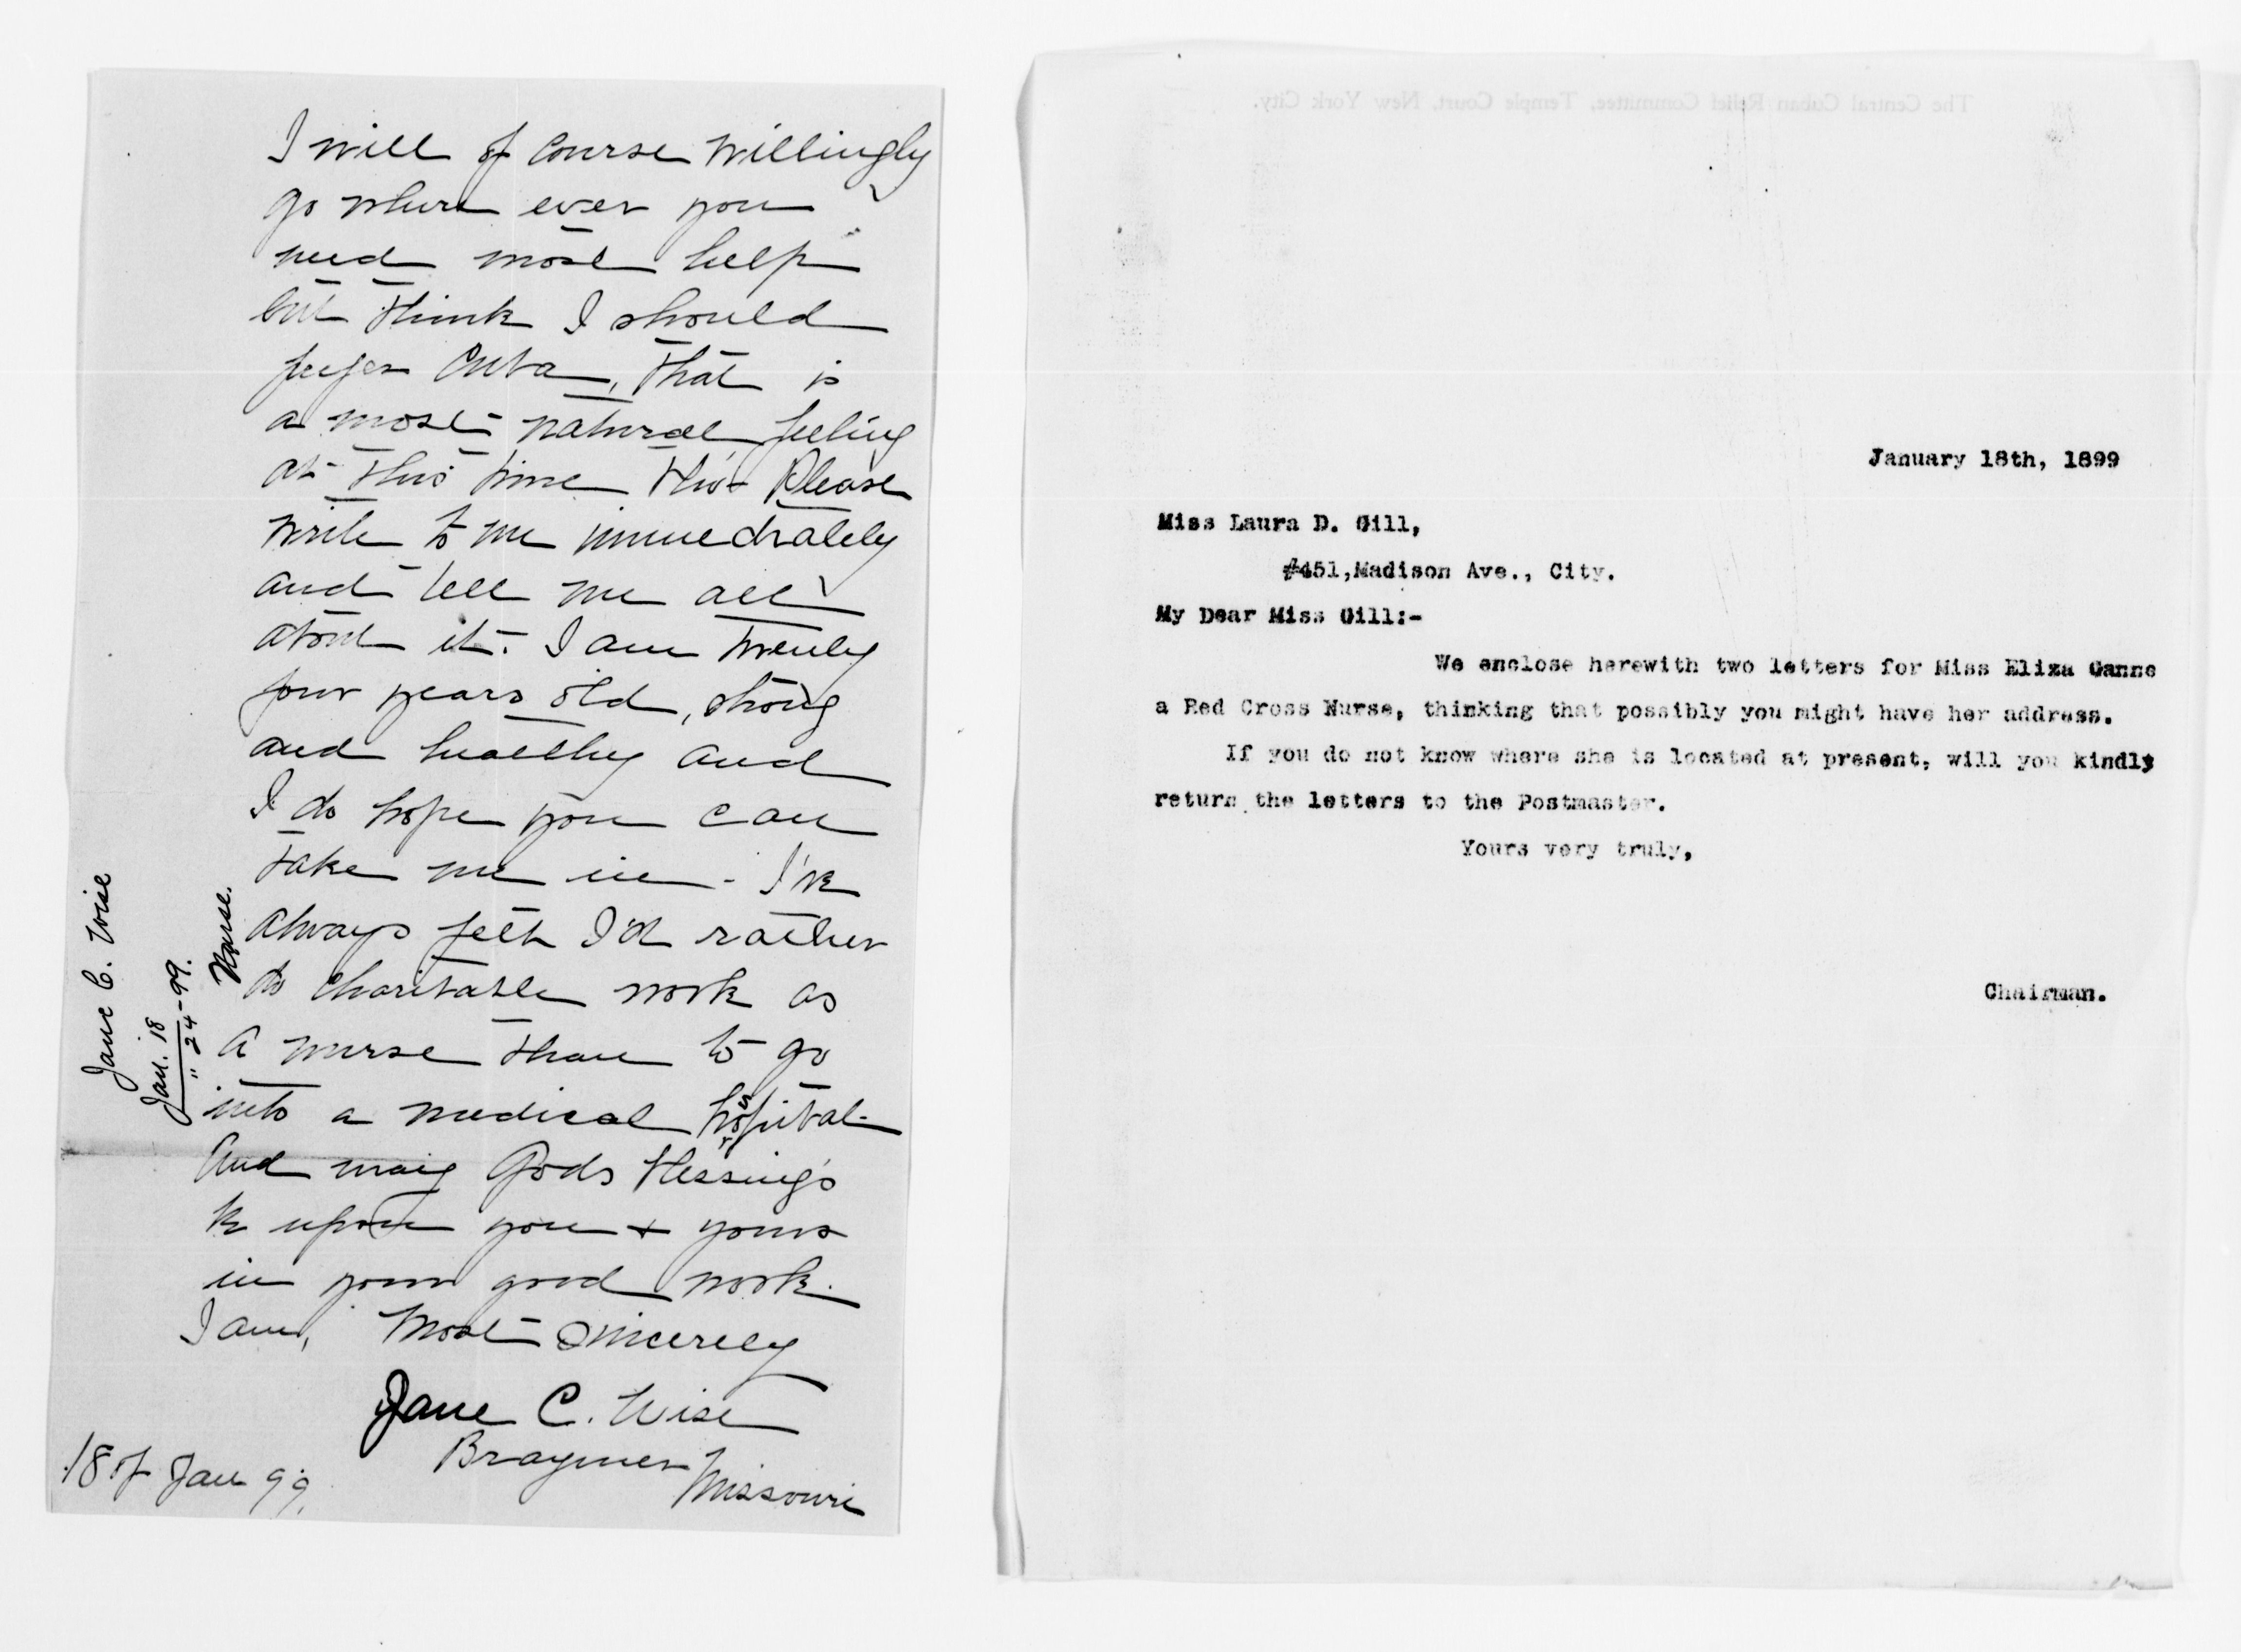 I will of course willingly
go where ever you
need most help
but think I should
prefer Cuba, that is
a most natural feeling
at this time Please
write to me immediately
and tell me all
about it. I am twenly
four years old, strong
and healthy and
I do hope you can
take me in - I've
always felt I'd rather
do charitable work as
a nurse than to go
into a medical hospital-
And may Gods blessings
be upon you + yours
in your good work.
I am, Most Sincerely
Jane C. Wise
Braymer
Missouri
18 of Jan 99.
Jane C. Wise
Jan. 18
" 24 - 99.
Nurse.
The Central Cuban Relief Committee, Temple Court, New York City.
January 18th, 1899
Miss Laura D. Gill,
#451,Madison Ave., City.
My Dear Miss Gill:-
We enclose herewith two letters for Miss Eliza Ganne
a Red Cross Nurse, thinking that possibly you might have her address.
If you do not know where she is located at present, will you kindly
return the letters to the Postmaster.
Yours very truly,
Chairman.